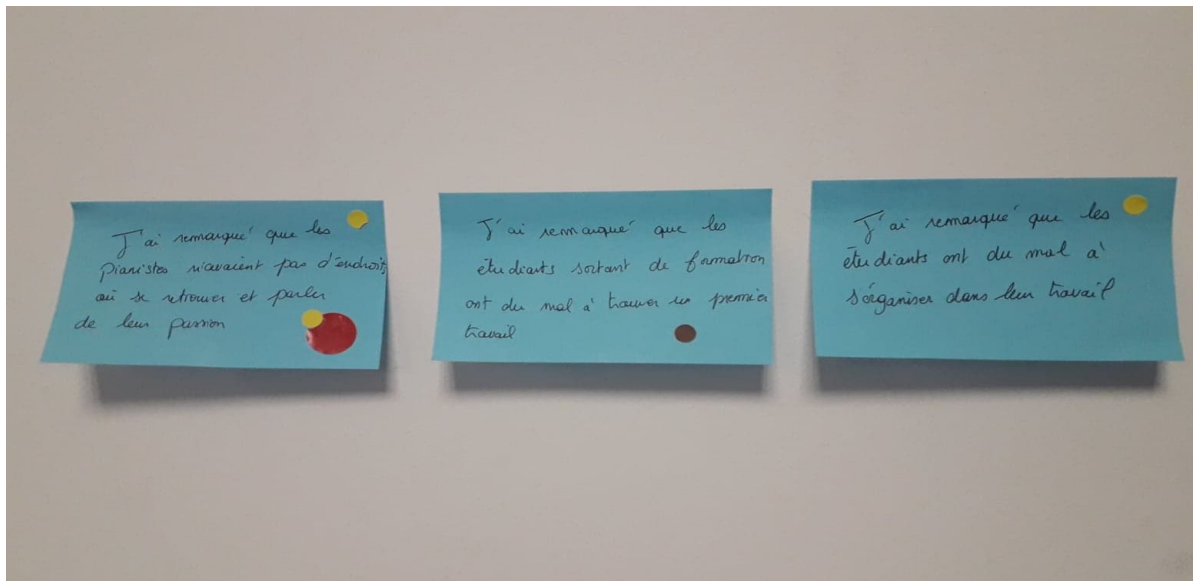 J'ai remarqué que les
pianistes n'avaient pas d'endroits
où se retrouver et parler
de leur passion
J'ai remarqué que les
étudiants sortant de formation
ont du mal à trouver un premier
travail
J'ai remarqué que les
étudiants ont du mal à
s'organiser dans leur travail